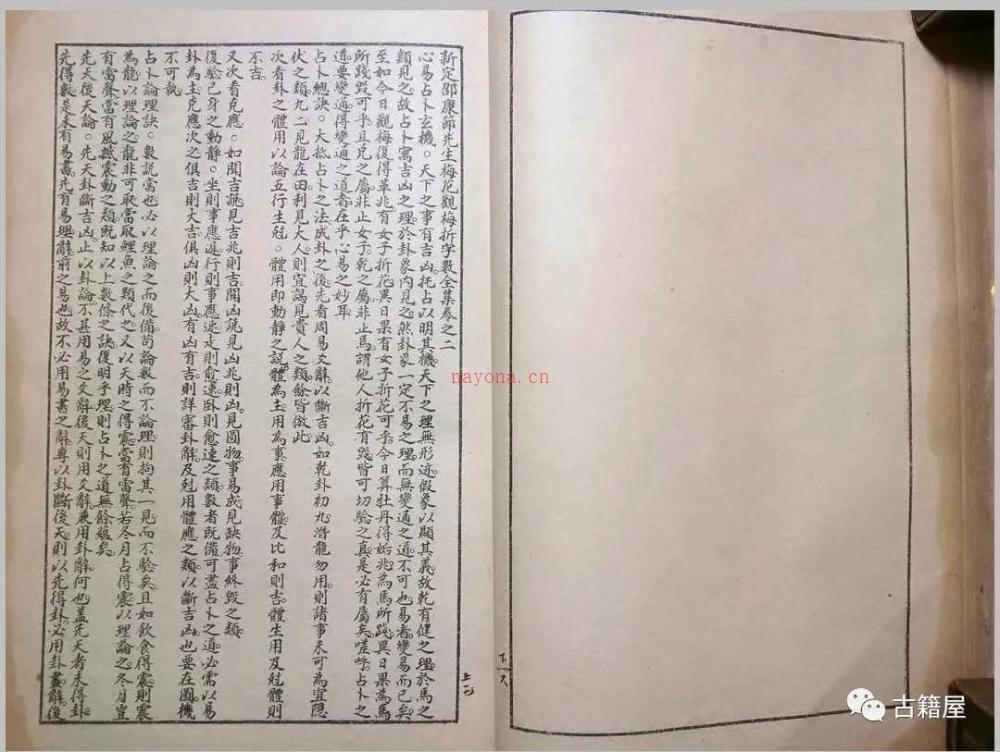 新定邵康節先生梅花觀梅折字數全集卷之二
心易占卜玄機。天下之事有吉凶托占以明其機天下之理無形迹假象以顯其義故乾有健之理於馬之
類見之故占卜寓吉凶之理於卦象內見之然卦象一定不易之理而無變通之道不可也易者變易而已矣
至如今日觀梅復得革兆有女子折花異日果有女子折花可乎今日算牡丹得姤兆為馬所踐異日果為馬
所踐毀可乎且兌之屬非止女子乾之屬非止馬謂他人折花有毀皆可切驗之真是必有屬矣嗟呼占卜之
道要變通得變通之道者在乎心易之妙耳
占卜總訣。大抵占卜之法成卦之後先看周易爻辭以斷吉凶如乾卦初九潛龍勿用則諸事未可為宜隱
伏之類九二見龍在田利見大人則宜謁見貴人之類餘皆倣此
次看卦之體用以論五行生尅。體用即動靜之說體為主用為事應用事體及比和則吉體生用及尅體則
不吉
又次看克應。如聞吉說見吉兆則吉聞凶說見凶兆則凶見圓物事易成見缺物事終毀之類
復驗己身之動靜。坐則事應遲行則事應速走則愈速臥則愈遲之類數者既備可盡占卜之道必需以易
卦為主克應次之俱吉則大吉俱凶則大凶有凶有吉則詳審卦辭及尅用體應之類以斷吉凶也要在圓機
不可執
占卜論理訣。數說當也必以理論之而後備苟論數而不論理則拘其一見而不驗矣且如飲食得震則震
為龍以理論之龍非可取當取鯉魚之類代之又以天時之得震當有雷聲若冬月占得震以理論之冬月豈
有雷聲當有風撼震動之類既知以上數條之訣復明乎理則占卜之道無餘蘊矣
先天後天論。先天卦斷吉凶止以卦論不甚用易之爻辭後天則用爻辭兼用卦辭何也蓋先天者未得卦
先得數是未有易書先有易理辭前之易也故不必用易書之辭專以卦斷後天則以先得卦必用卦畫辭後
nayona.cn
古籍屋